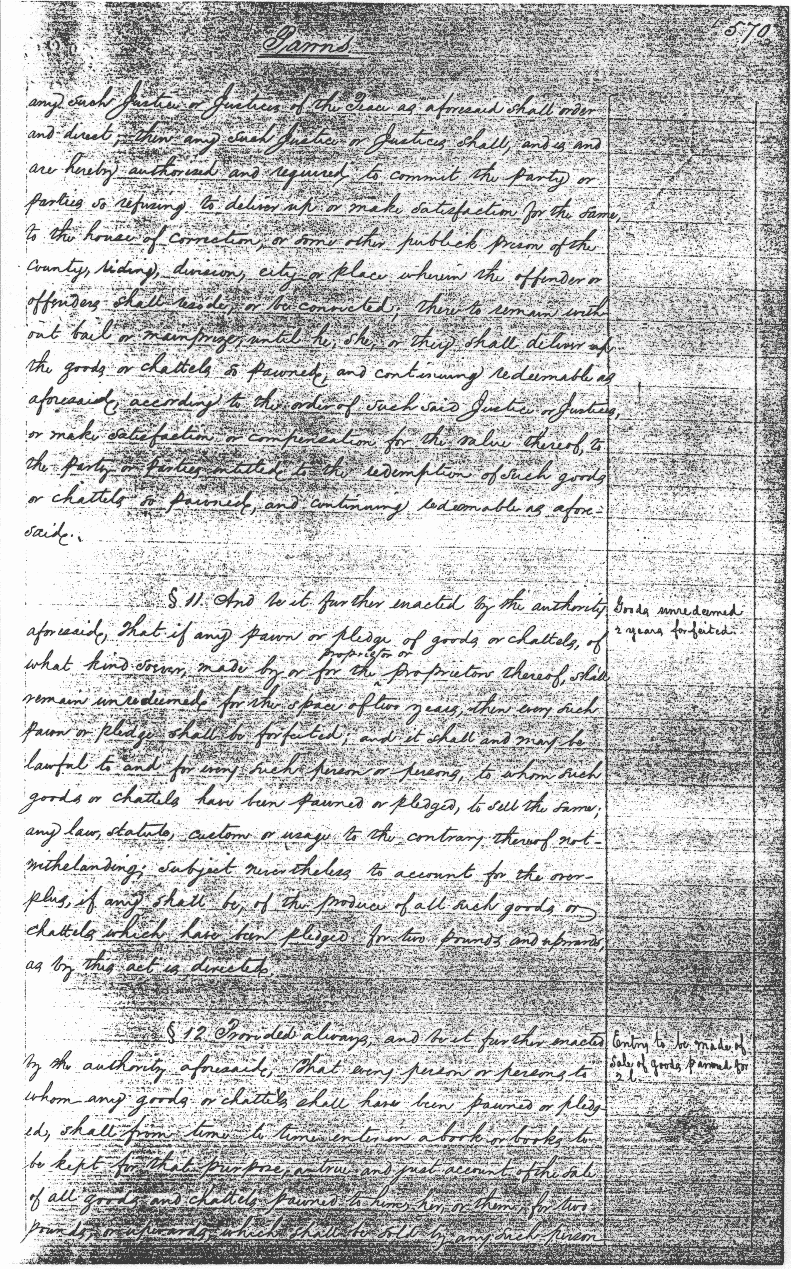 570
Pawns
any such Justice or Justices of the Peace as aforesaid shall order
and direct; then any such Justice or Justices shall, and is and
are hereby authorised and required, to commit the party or
parties so refusing to deliver up or make satisfaction for the same,
to the house of correction, or some other publick prison of the
County, riding, division, city or place wherein the offender or
offenders shall reside, or be convicted; there to remain with
out bail or mainprize, until he, she, or they shall deliver up
the goods or chattels so pawned, and continuing redeemable as
aforesaid, according to the order of such said Justice or Justices,
or make satisfaction or compensation for the value thereof, to
the party or parties intitled to the redemption of such goods
or chattels so pawned, and continuing redeemable as afore-
said.
§ 11. And be it further enacted by the authority
aforesaid, That if any pawn or pledge of goods or chattels, of
proprietor or
what kind soever, made by or for the Proprietors thereof, shall
remain unredeemed for the space of two years, then every such
pawn or pledge shall be forfeited; and it shall and may be
lawful to and for every such person or persons, to whom such
goods or chattels have been pawned or pledged, to sell the same;
any law, statute, custom or usage to the contrary thereof not-
withstanding; subject nevertheless to account for the over-
plus, if any shall be, of the produce of all such goods or
chattels which have been pledged for two pounds and upwards,
as by this act is directed.
Goods unredeemed
2 years forfeited.
§ 12. Provided always, and be it further enacted
by the authority aforesaid, That every person or persons to
whom any goods or chattels shall have been pawned or pledg-
ed, shall from time to time enter in a book or books to
be kept for that purpose, a true and just account of the sale
of all goods and chattels pawned to him, her or them, for two
pounds, or upwards, which shall be sold by any such person
Entry to be made of
Sale of goods pawned for
2 l.